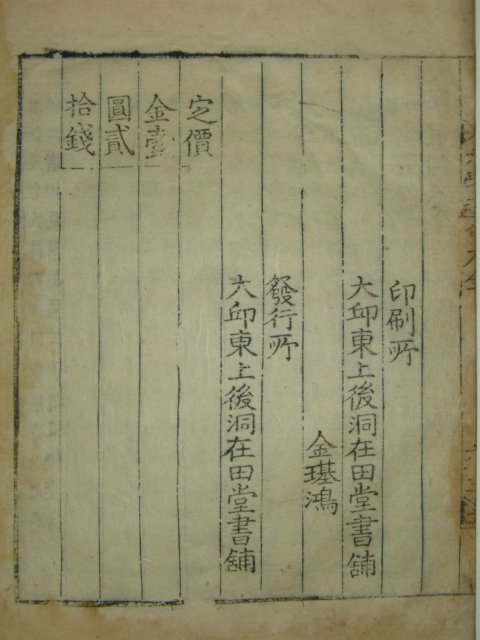 印刷所
大邱東上後洞在田堂書舖
金璂鴻
發行所
大邱東上後洞在田堂書舖
定價
金壹
圓貳
拾錢